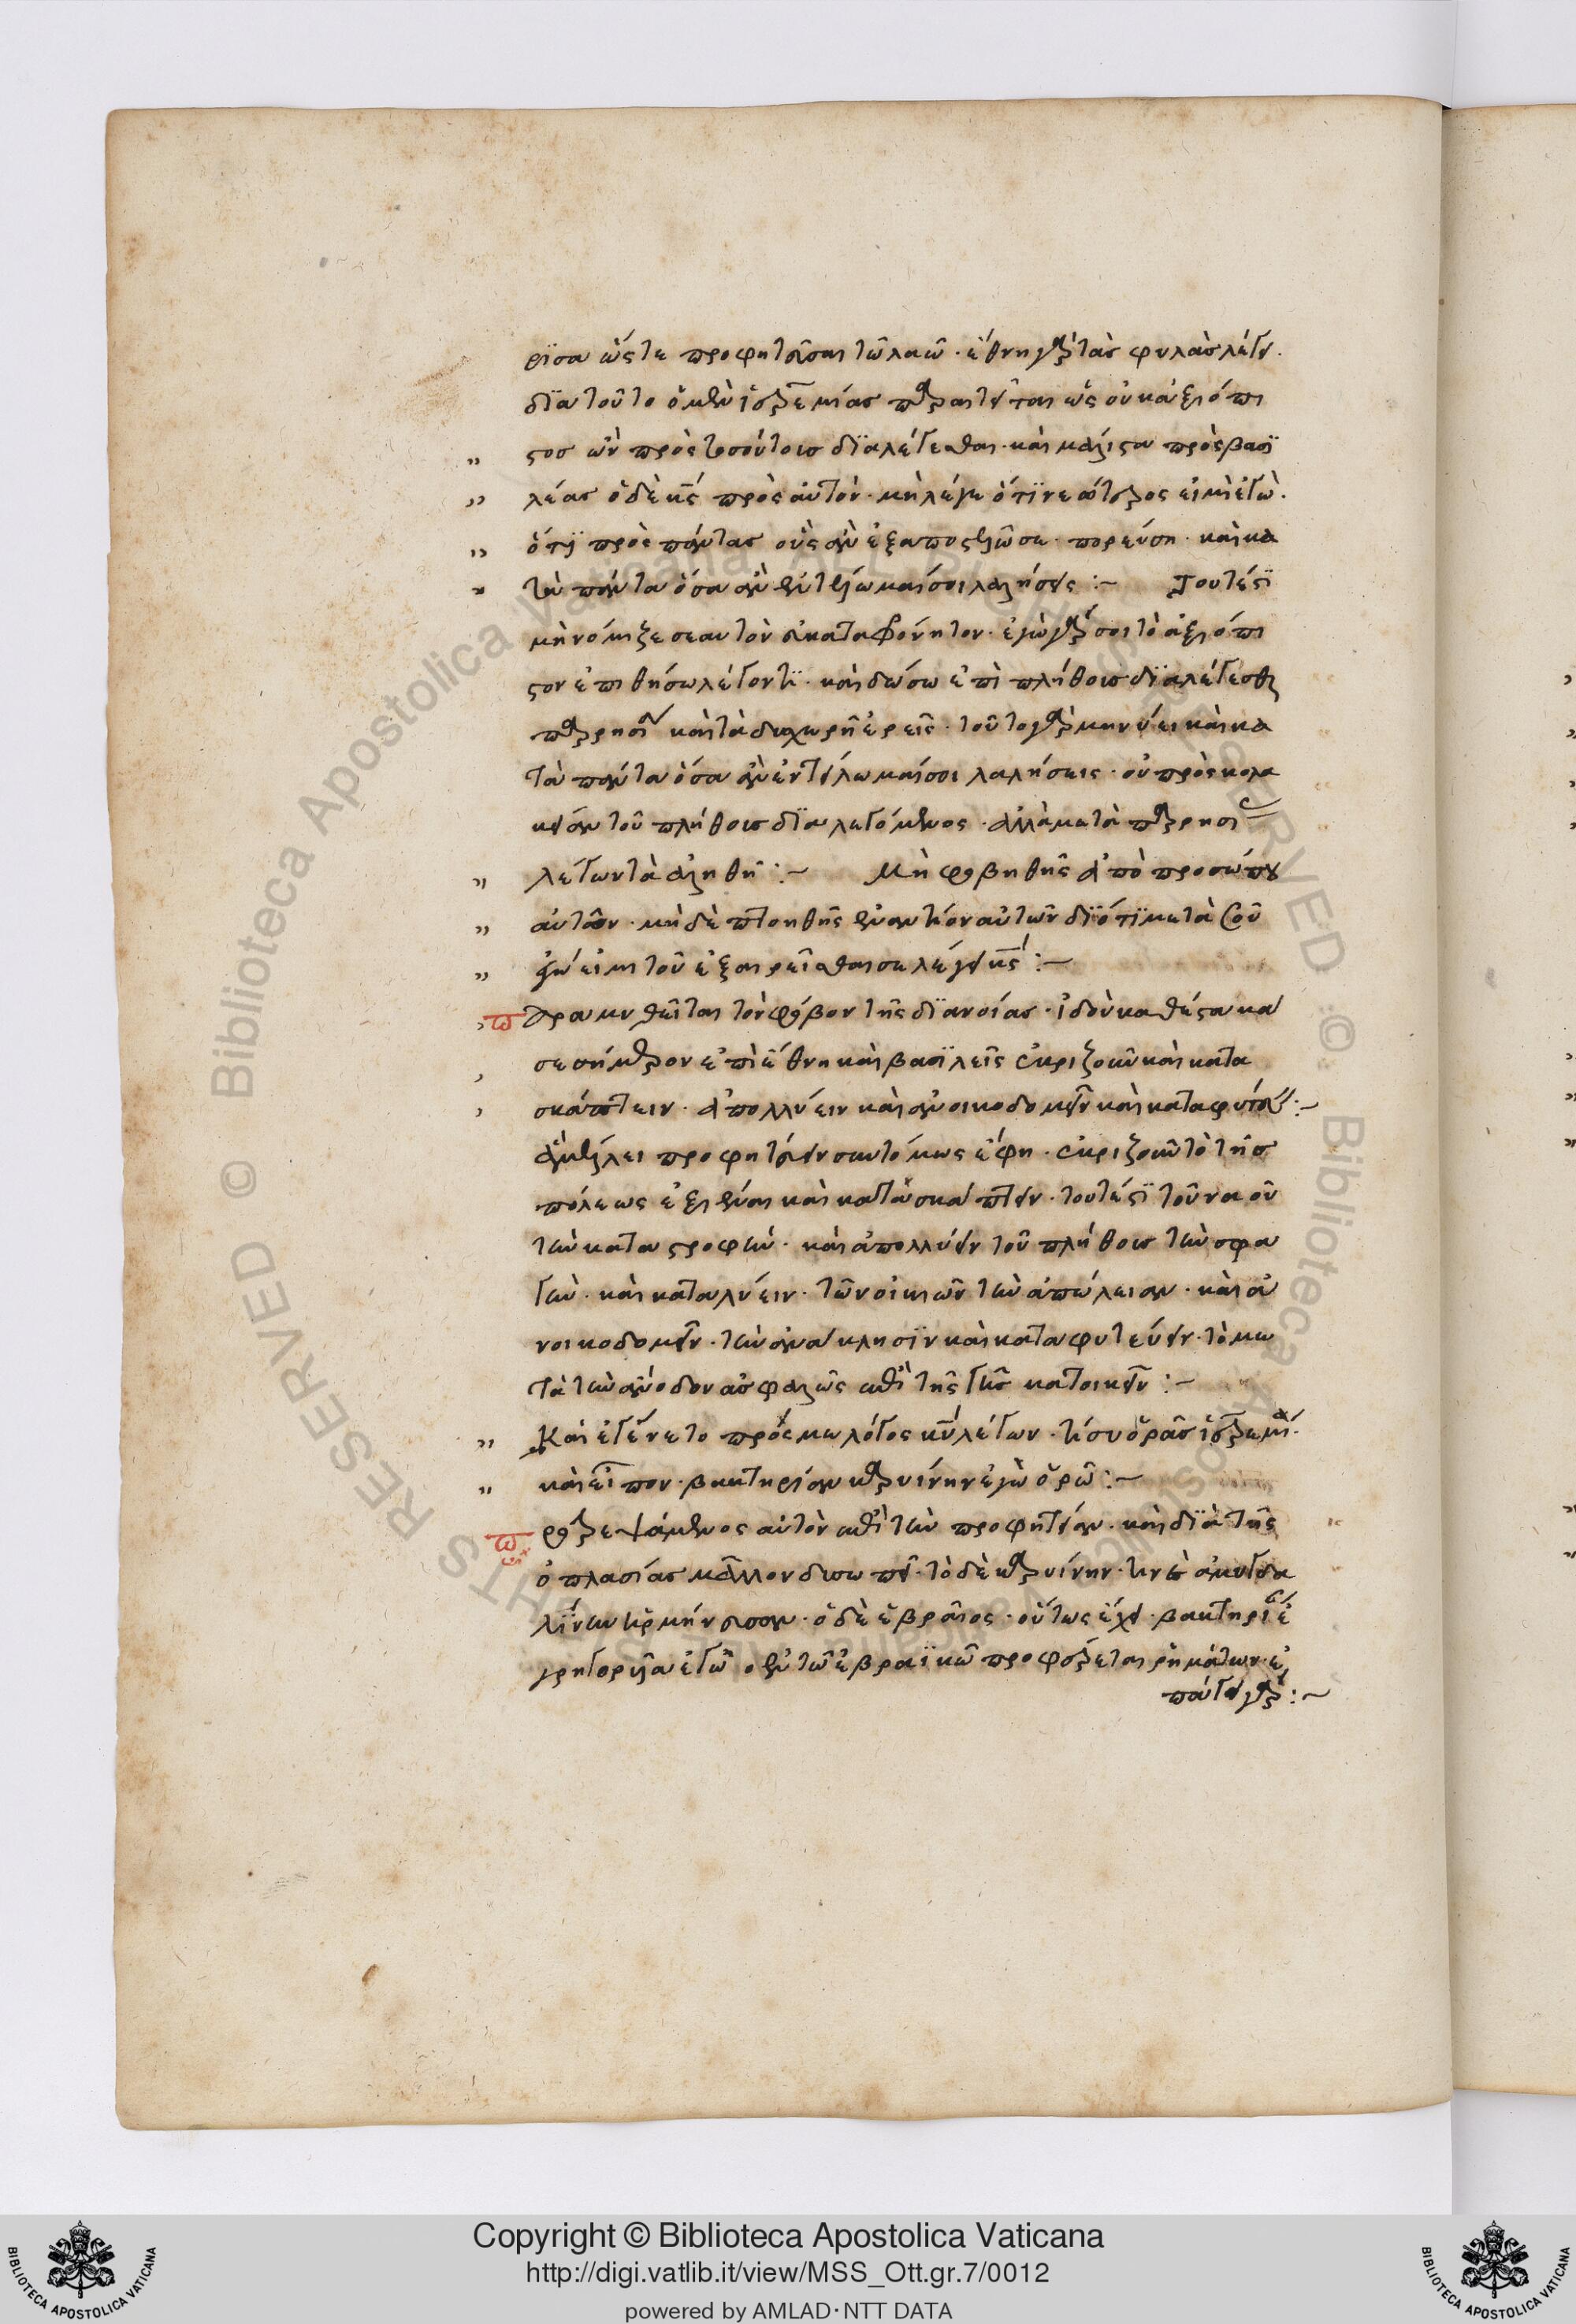 ρϊσα ὥστε προφητεῦσαι τῷ λαῷ· ἔθνη γὰρ τὰς φυλὰς λέγει.
διὰ τοῦτο ὁ μὲν ἱερεμίας παραιτεῖται ὡς οὐκ ἀξιόπι
στος ὢν πρὸς τοσούτους διαλέγεσθαι· καὶ μάλιστα πρὸς βασι
λέας ὁ δὲ κ̅ς̅ πρὸς αὐτόν· μὴ λέγε ὅτι νεώτερος εἰμὶ ἐγώ.
ὅτι πρὸς πάντας οὓς ἂν ἐξαποστελῶ σε· πορεύση· καὶ κα
τὰ πάντα ὅσα ἂν ἐντείλωμαί σοι λαλήσεις :~ Τουτέστι
μὴ νόμιζε σεαυτὸν εὐκαταφρόνητον· ἐγὼ γάρ σοι τὸ ἀξιόπι
στον ἐπιθήσω λέγοντι· καὶ δώσω ἐπὶ πλήθους διαλέγεσθαι
παρρησίαν καὶ τὰ δυσχερῆ ἐρεῖς· τοῦτο γὰρ μηνύει καὶ κα
τὰ πάντα ὅσα ἂν ἐντείλωμαί σοι λαλήσεις· οὐ πρὸς κολα
κείαν τοῦ πλήθους διαλεγόμενος· ἀλλὰ μετὰ παρρησίας
λέγων τὰ ἀληθῆ :~ Μὴ φοβηθῆς ἀπὸ προσώπου
αὐτῶν· μὴ δὲ πτοηθῆς ἐναντίον αὐτῶν διότι μετὰ σοῦ
ἐγώ εἰμι τοῦ ἐξαιρεῖσθαι σε λέγει κ̅ς̅ :~
Παραμυθεῖται τὸν φόβον τῆς διανοίας· ἰδοὺ καθέστακα
σε σήμερον ἐπὶ ἔθνη καὶ βασιλεῖς ἐκριζοῦν καὶ κατα
σκάπτειν· ἀπολλύειν καὶ ἀνοικοδομεῖν καὶ καταφυτεύειν :~
ἃ μέλλει προφητεύειν συντόμως ἔφη· ἐκριζοῦν τὸ τῆς
πόλεως ἐξιέναι καὶ κατασκάπτειν· τουτέστι τοῦ ναοῦ
τὴν καταστροφήν· καὶ ἀπολλύειν τοῦ πλήθους τὴν σφα
γήν· καὶ καταλύειν· τῶν οἰκιῶν τὴν ἀπώλειαν· καὶ ἀ
νοικοδομεῖν· τὴν ἀνάκλησιν καὶ καταφυτεύειν· τὸ με
τὰ τὴν ἄνοδον ἀσφαλῶς ἐπὶ τῆς γῆς κατοικεῖν :~
Καὶ ἐγένετο πρός με λόγος κ̅υ̅ λέγων· τί συ ὁρᾶς ἱερεμία.
καὶ εἶπον· βακτηρίαν καρυίνην ἐγὼ ὁρῶ :~
προτρεψάμενος αὐτὸν ἐπὶ τὴν προφητείαν· καὶ διὰ τῆς
ὀπτασίας μᾶλλον δυσωπεῖ· τὸ δὲ καρυίνην· τινὲς ἀμυγδα
λίνην ἡρμήνευσαν· ὁ δὲ ἑβραῖος· οὕτως ἔχει· βακτηρίας ἐ
γρηγορυῖα ἐγὼ ὁ ἐν τῷ ἑβραϊκῷ προφέρεται ῥημάτων· ἐ
πάγει γάρ :~
Copyright © Biblioteca Apostolica Vaticana
http://digi.vatlib.it/view/MSS_Ott.gr.7/0012
powered by AMLAD·NTT DATA